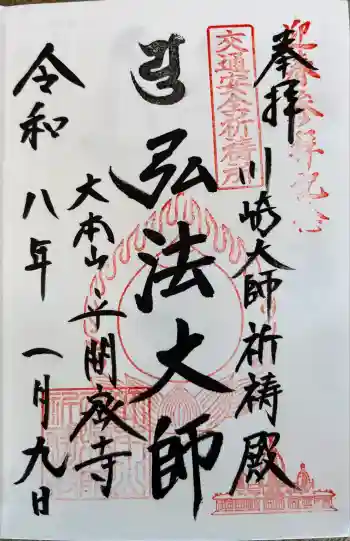 奉拝
迎春参拝記念
川崎大師祈祷殿
交通安全祈祷所
弘法大師
大本山平間寺
令和八年一月九日